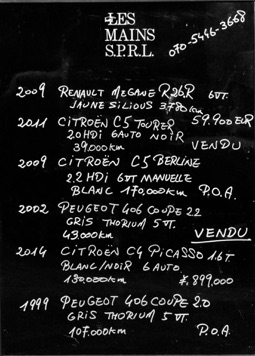 LES
MAINS
S.P.R.L.
070-5446-3668
2009 RENAULT MEGANE R26R 6VT.
JAUNE SILIOUS 3.780km
2011 CITROËN C5 TOURER 59.900EUR
20HDI 6AUTO NOIR
39.000km VENDU
2009 CITROËN C5 BERLINE
2.2 HDi 6VT MANUELLE
BLANC 170.000km P.O.A.
2002 PEUGEOT 406 COUPE 2.2
GRIS THORIUM 5 VT.
43.000km VENDU
2014 CITROËN C4 PICASSO 1.6T
BLANC/NOIR 6 AUTO
130.000km ¥,899.000
1999 PEUGEOT 406 COUPE 2.0
GRIS THORIUM 5 VT.
107.000km P.O.A.